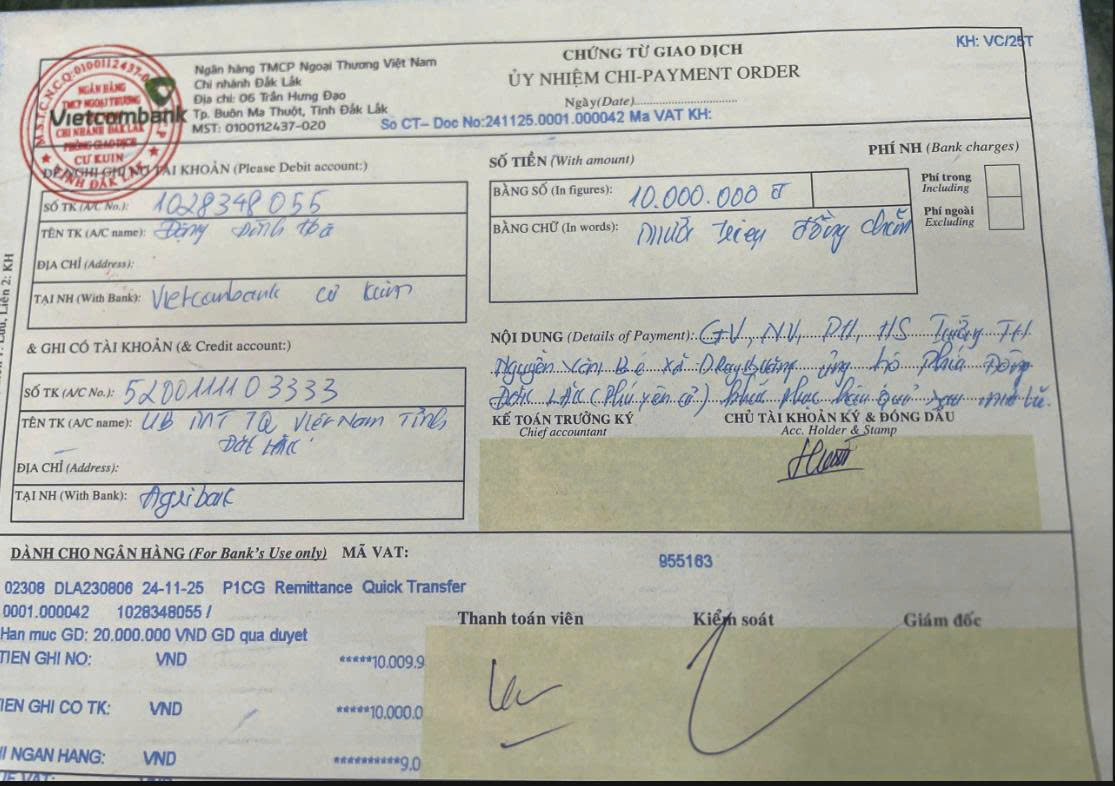 KH: VC/25T
CHỨNG TỪ GIAO DỊCH
ỦY NHIỆM CHI-PAYMENT ORDER
Ngày(Date)
Số CT– Doc No:241125.0001.000042 Ma VAT KH:
Ngân hàng TMCP Ngoại Thương Việt Nam
Chi nhánh Đắk Lắk
Địa chỉ: 06 Trần Hưng Đạo
Tp. Buôn Ma Thuột, Tỉnh Đắk Lắk
MST: 0100112437-020
Vietcombank
M.S.T.C.N.C.Q:0100112437-0
NGÂN HÀNG
TMCP NGOẠI THƯƠNG
CHI NHÁNH ĐẮK LẮK
PHÒNG GIAO DỊCH
CƯ KUIN
TỈNH ĐẮK LẮK
ĐỀ NGHỊ GHI NỢ TÀI KHOẢN (Please Debit account:)
SỐ TK (A/C No.): 1028348055
TÊN TK (A/C name): Đặng Đình
ĐỊA CHỈ (Address):
TẠI NH (With Bank): Vietcombank cư Kuin
& GHI CÓ TÀI KHOẢN (& Credit account:)
SỐ TK (A/C No.): 5200111103333
TÊN TK (A/C name): UB MT TQ Việt Nam Tỉnh
Đắk Lắk
ĐỊA CHỈ (Address):
TẠI NH (With Bank): Agribank
SỐ TIỀN (With amount)
BẰNG SỐ (In figures): 10.000.000 đ
BẰNG CHỮ (In words): mười triệu đồng chẵn
PHÍ NH (Bank charges)
Phí trong
Including
Phí ngoài
Excluding
NỘI DUNG (Details of Payment): GV, NV, PH, HS Trường TH
Nguyễn Văn Bé xã Dray Bhăng ủng hộ phía Đông
Đắk Lắk (Phú yên cũ) khắc phục hậu quả sau mưa lũ.
KẾ TOÁN TRƯỞNG KÝ
Chief accountant
CHỦ TÀI KHOẢN KÝ & ĐÓNG DẤU
Acc. Holder & Stamp
Liên 2: KH
DÀNH CHO NGÂN HÀNG (For Bank's Use only) MÃ VAT:
955163
02308 DLA230806 24-11-25 P1CG Remittance Quick Transfer
0001.000042 1028348055 /
Han muc GD: 20.000.000 VND GD qua duyet
TIEN GHI NO: VND *****10.009.9
IEN GHI CO TK: VND *****10.000.0
I NGAN HANG: VND **********9.0
Thanh toán viên
Kiểm soát
Giám đốc